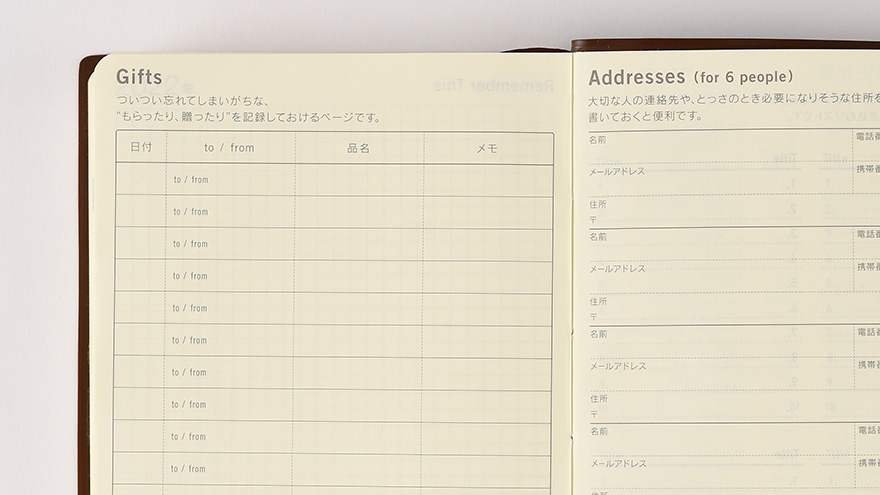 Gifts
ついつい忘れてしまいがちな、
"もらったり、贈ったり"を記録しておけるページです。
日付 to / from 品名 メモ
to / from
to / from
to / from
to / from
to / from
to / from
to / from
to / from
to / from
to / from
Addresses (for 6 people)
大切な人の連絡先や、とっさのとき必要になりそうな住所を
書いておくと便利です。
名前 電話番
メールアドレス 携帯番
住所
〒
名前 電話番
メールアドレス 携帯番
住所
〒
名前 電話番
メールアドレス 携帯番
住所
〒
名前 電話番
メールアドレス 携帯番